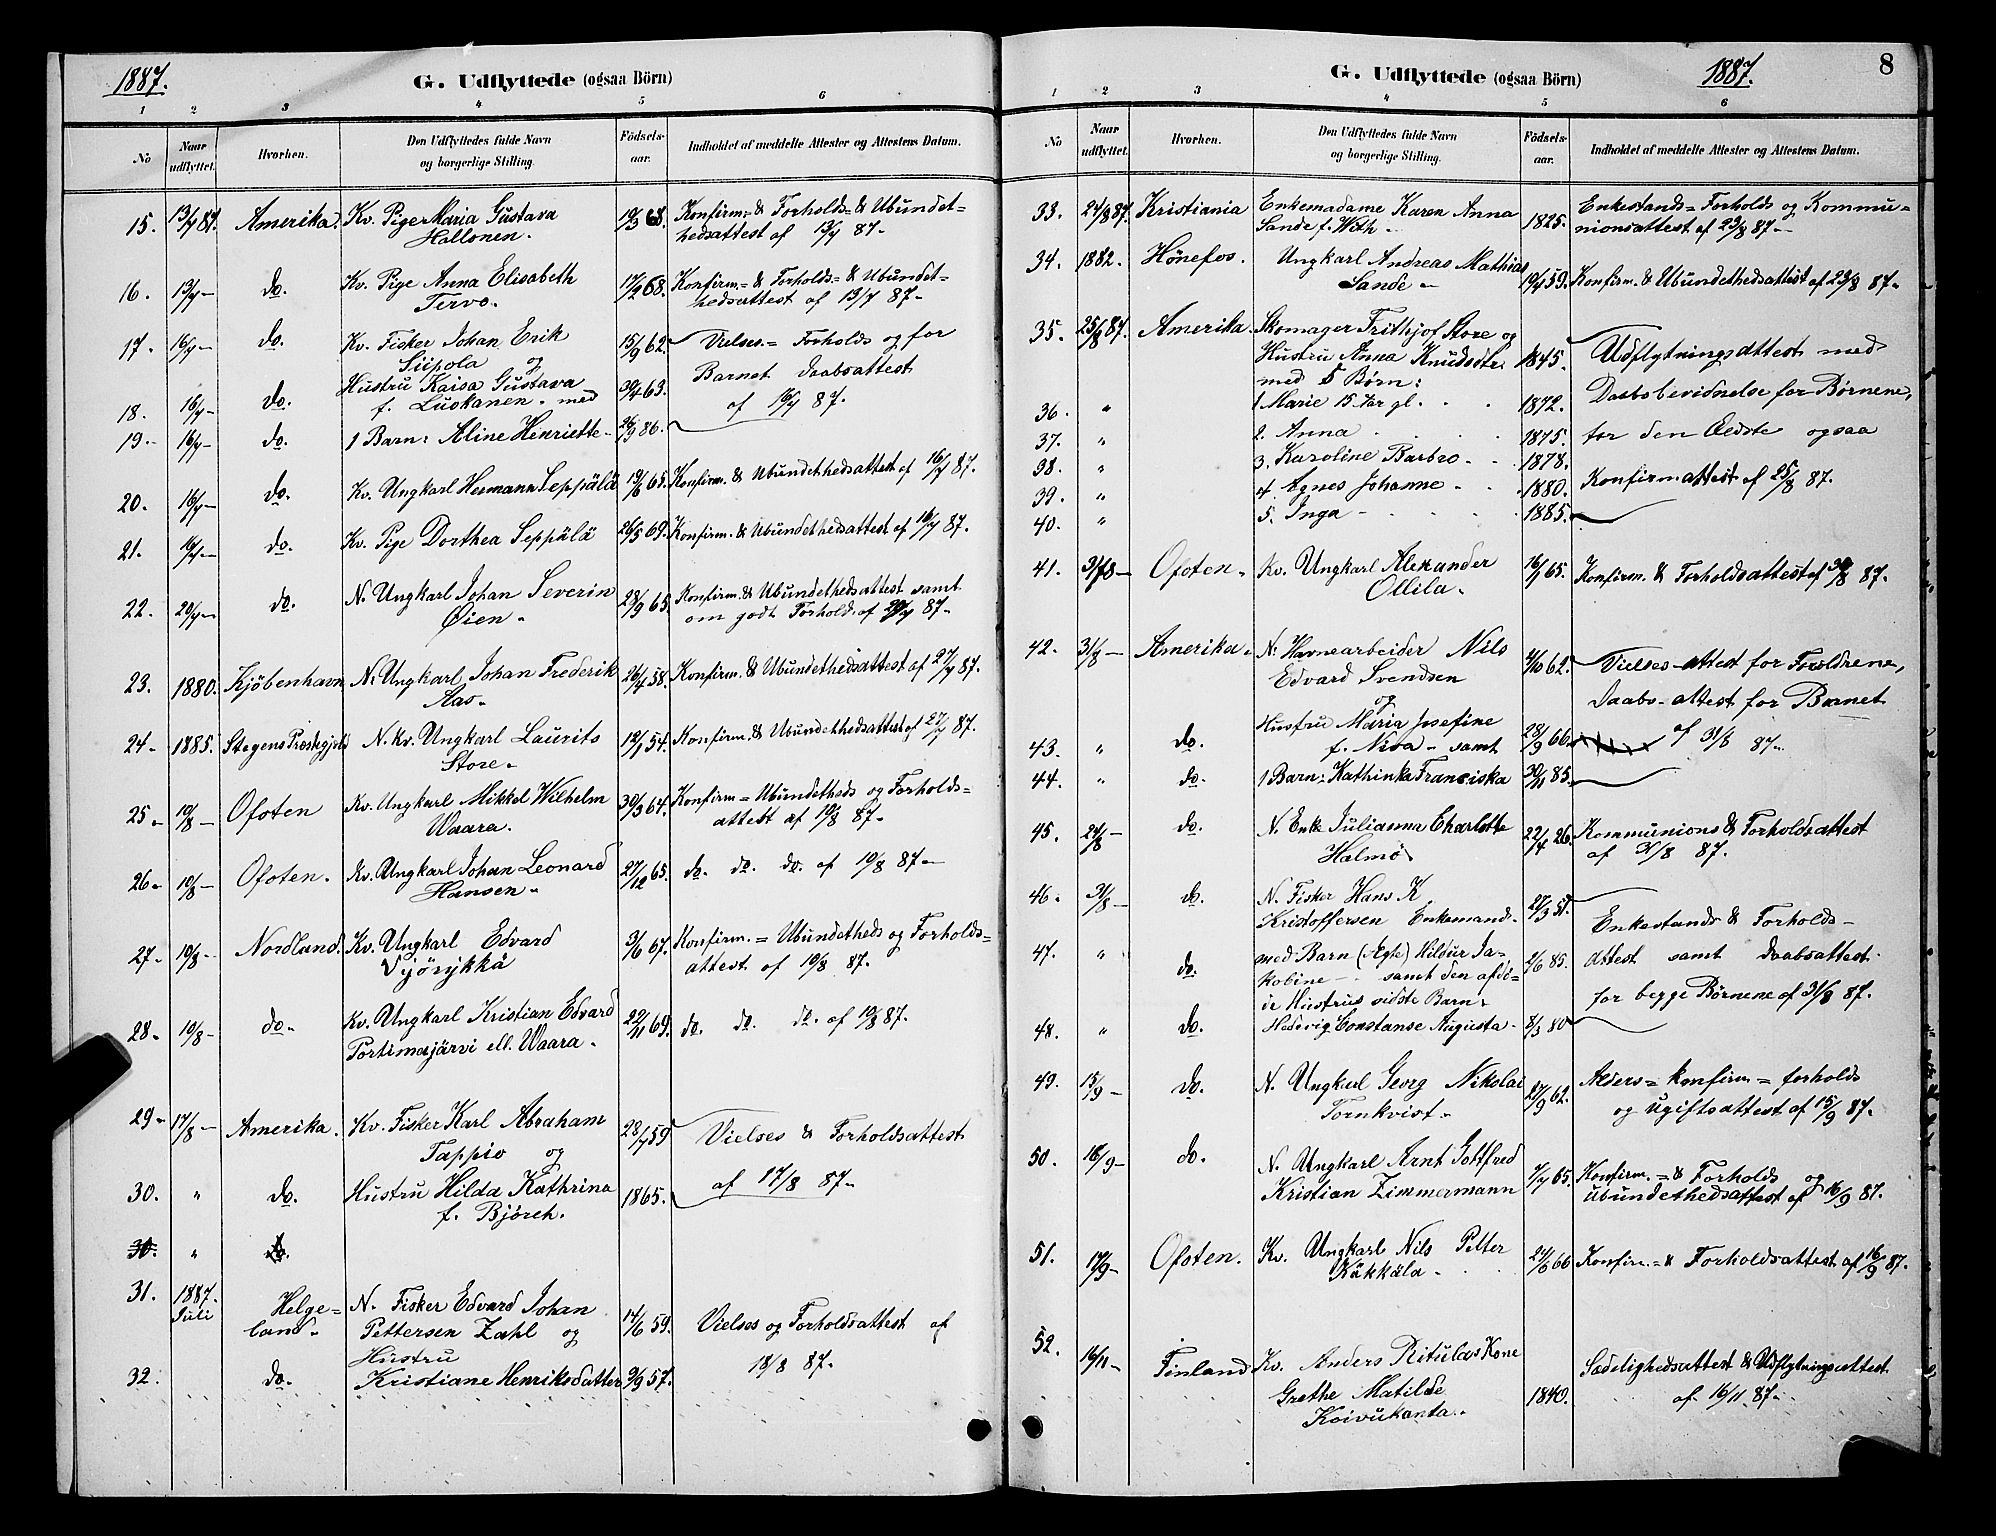 1887.
G. Udflyttede (ogsaa Börn)
1 2 3 4 5 6
No
Naar udflyttet.
Hvorhen.
Den Udflyttedes fulde Navn og borgerlige Stilling.
Födsels-aar.
Indholdet af meddelte Attester og Attestens Datum.
15. 13/7 87. Amerika. Kv. Pige Maria Gustava 19/3 68. Konfirm.- & Forholds- & Ubundet=
Hallonen. hedsattest af 13/7 87.
16. 13/7 do. Kv. Pige Anna Elisabeth 17/2 68. Konfirm.= & Forholds- & Ubundet=
Tervo. hedsattest af 13/7 87.
17. 16/7 do. Kv. Fisker Johan Erik 15/9 62. Vielses.= Forholds og for
Siipola og Barnet Daabsattest
18. 16/7 do. Hustru Kaisa Gustava 30/4 63. af 16/7 87.
f. Luskanen. med
19. 16/7 do. 1 Barn: Aline Henriette 26/9 86.
20. 16/7 do. Kv. Ungkarl Hermann Seppälä 19/6 65. Konfirm. & Ubundethedsattest af 16/7 87.
21. 16/7 do. Kv. Pige Dorthea Seppälä 26/5 69. Konfirm. & Ubundethedsattest af 16/7 87.
22. 20/7 do. N. Ungkarl Johan Severin 28/9 65. Konfirm. & Ubundethedsattest samt
Øien. om godt Forhold af 20/7 87.
23. 1880. Kjöbenhavn N. Ungkarl Johan Frederik 26/4 58. Konfirm. & Ubundethedsattest af 27/7 87.
Aas.
24. 1885. Stegens Præstegjeld N. kv. Ungkarl Laurits 12/1 54. Konfirm. & Ubundethedsattest af 27/7 87.
Store.
25. 10/8 Ofoten Kv. Ungkarl Mikkel Wilhelm 30/3 64. Konfirm= Ubundetheds og Forholds=
Waara. attest af 10/8 87.
26. 10/8 Ofoten. Kv. Ungkarl Johan Leonard 27/12 65. do. do. do. af 10/8 87.
Hansen.
27. 10/8 Nordland. Kv. Ungkarl Edvard 3/6 67. Konfirm.= Ubundetheds og Forholds=
Vyörykkä attest af 10/8 87.
28. 10/8 do. Kv. Ungkarl Kristian Edvard 22/11 69. do. do. do. af 10/8 87.
Portimojärvi ell. Waara.
29. 17/8 Amerika. Kv. Fisker Karl Abraham 28/7 59 Vielses & Forholdsattest
Tappio og
30. " do. Hustru Hilda Kathrina 1865. af 17/8 87.
f. Björeh.
30. " do.
31. 1887. Juli Helge=land. N. Fisker Edvard Johan 14/6 59. Vielses og Forholdsattest af
Pettersen Zahl og
Hustru
32. do. Kristiane Henriksdatter 9/9 57. 18/8 87.
8
G. Udflyttede (ogsaa Börn) 1887.
1 2 3 4 5 6
No
Naar udflyttet.
Hvorhen.
Den Udflyttedes fulde Navn og borgerlige Stilling.
Födsels-aar.
Indholdet af meddelte Attester og Attestens Datum.
33. 24/8 87. Kristiania Enkemadame Karen Anna Enkestands= Forholds og Kommu=
Sande f. With. 1825. nionsattest af 23/8 87.
34. 1882. Hönefos. Ungkarl Andreas Mathias
Sande 19/4 59. Konfirm. & Ubundethedsattest af 23/8 87.
35. 25/8 87. Amerika. Skomager Frithjof Store og
Hustru Anna Knudsdtr. 1845. Udflytningsattest med
med 5 Börn: Daabsbevidnelse for Börnene,
36. " 1 Marie 15 Aar gl. 1872.
37. " 2. Anna 1875. for den Ældste ogsaa
38. " 3. Karoline Barbro 1878.
39. " 4 Agnes Johanne 1880. Konfirmattest af 25/8 87.
40. " 5. Inga 1885.
41. 31/8 Ofoten. Kv. Ungkarl Alexander 16/1 65. Konfirm. & Forholdsattest af 30/8 87.
Ollila.
42. 31/8 Amerika. N. Havnearbeider Nils 4/10 62. Vielses-attest for Forældrene,
Edvard Svendsen Daabs-attest for Barnet
og
43. " do. Hustru Maria Josefine 28/9 66. af 31/8 87.
f. Niva samt
44. " do. 1 Barn: Kathinka Franciska 30/11 85.
45. 24/8 do. N. Enke Julianna Charlotte 22/4 26. Kommunions & Forholdsattest
Halmö af 31/8 87.
46. 31/8 do. N. Fisker Hans K. 27/3 51.
Kristoffersen Enkemand Enkestands & Forholds-
47. " do. med Barn (Ægte) Hildur Ja- 2/6 85. attest samt Daabsattest
kobine samt den afdö=
de Hustrus sidste Barn. for begge Börnene af 31/8 87.
48. " do. Hedevig Constanse Augusta 8/3 80
49. 15/9 do. N. Ungkarl Georg Nikolai 27/9 62. Alders= konfirm= forholds
Tornkvist og ugiftsattest af 15/9 87.
50. 16/9 do. N. Ungkarl Arnt Gottfred 7/7 65. Konfirm.= & Forholds og
Kristian Zimmermann ubundethedsattest af 16/9 87.
51. 17/9 Ofoten. Kv. Ungkarl Nils Petter 24/6 66 Konfirm= & Forholdsattest af 16/9 87.
Käkkäla
52. 16/11 Finland Kv. Anders Ritulas Kone Sædelighedsattest & Udflytningsattest
Grethe Matilde 1840. af 16/11 87.
Koivukanta.